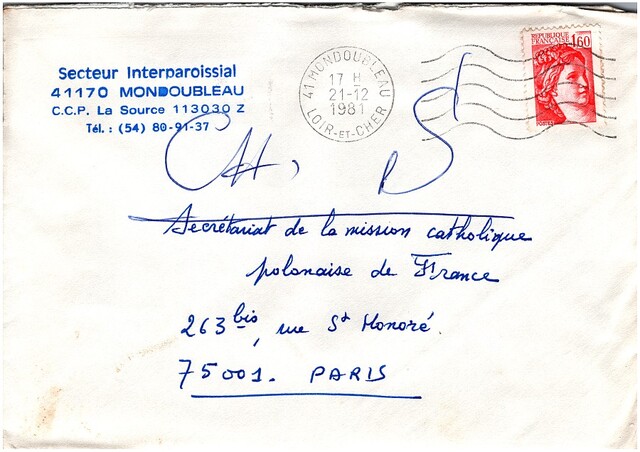 Secteur Interparoissial
41170 MONDOUBLEAU
C.C.P. La Source 113030 Z
Tél. : (54) 80-91-37
41 MONDOUBLEAU
17 H
21-12
1981
LOIR-ET-CHER
REPUBLIQUE
FRANÇAISE
1,60
POSTES
Secrétariat de la mission catholique
polonaise de France
263 bis, rue St Honoré.
75001. PARIS